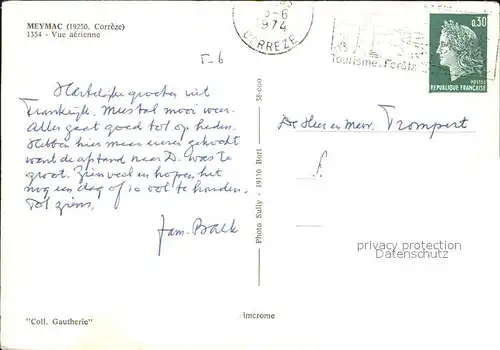 MEYMAC (19250, Corrèze)
1354 - Vue aérienne
5-6
1974
CORREZE
Tourisme. Forêts
0,30
POSTES
REPUBLIQUE FRANÇAISE
Hartelijke groeten uit
Frankrijk. Meestal mooi weer.
Alles gaat goed tot op heden.
Hebben hier maar gekocht
want de afstand naar D. was te
groot. Zien veel en hopen het
nog een dag of 10 vol te houden.
Tot ziens,
Fam. Balk
De Heer en Mevr. Trompert
Photo Sully - 19110 Bort
38-000
privacy protection
Datenschutz
"Coll. Gautherie"
imcrome